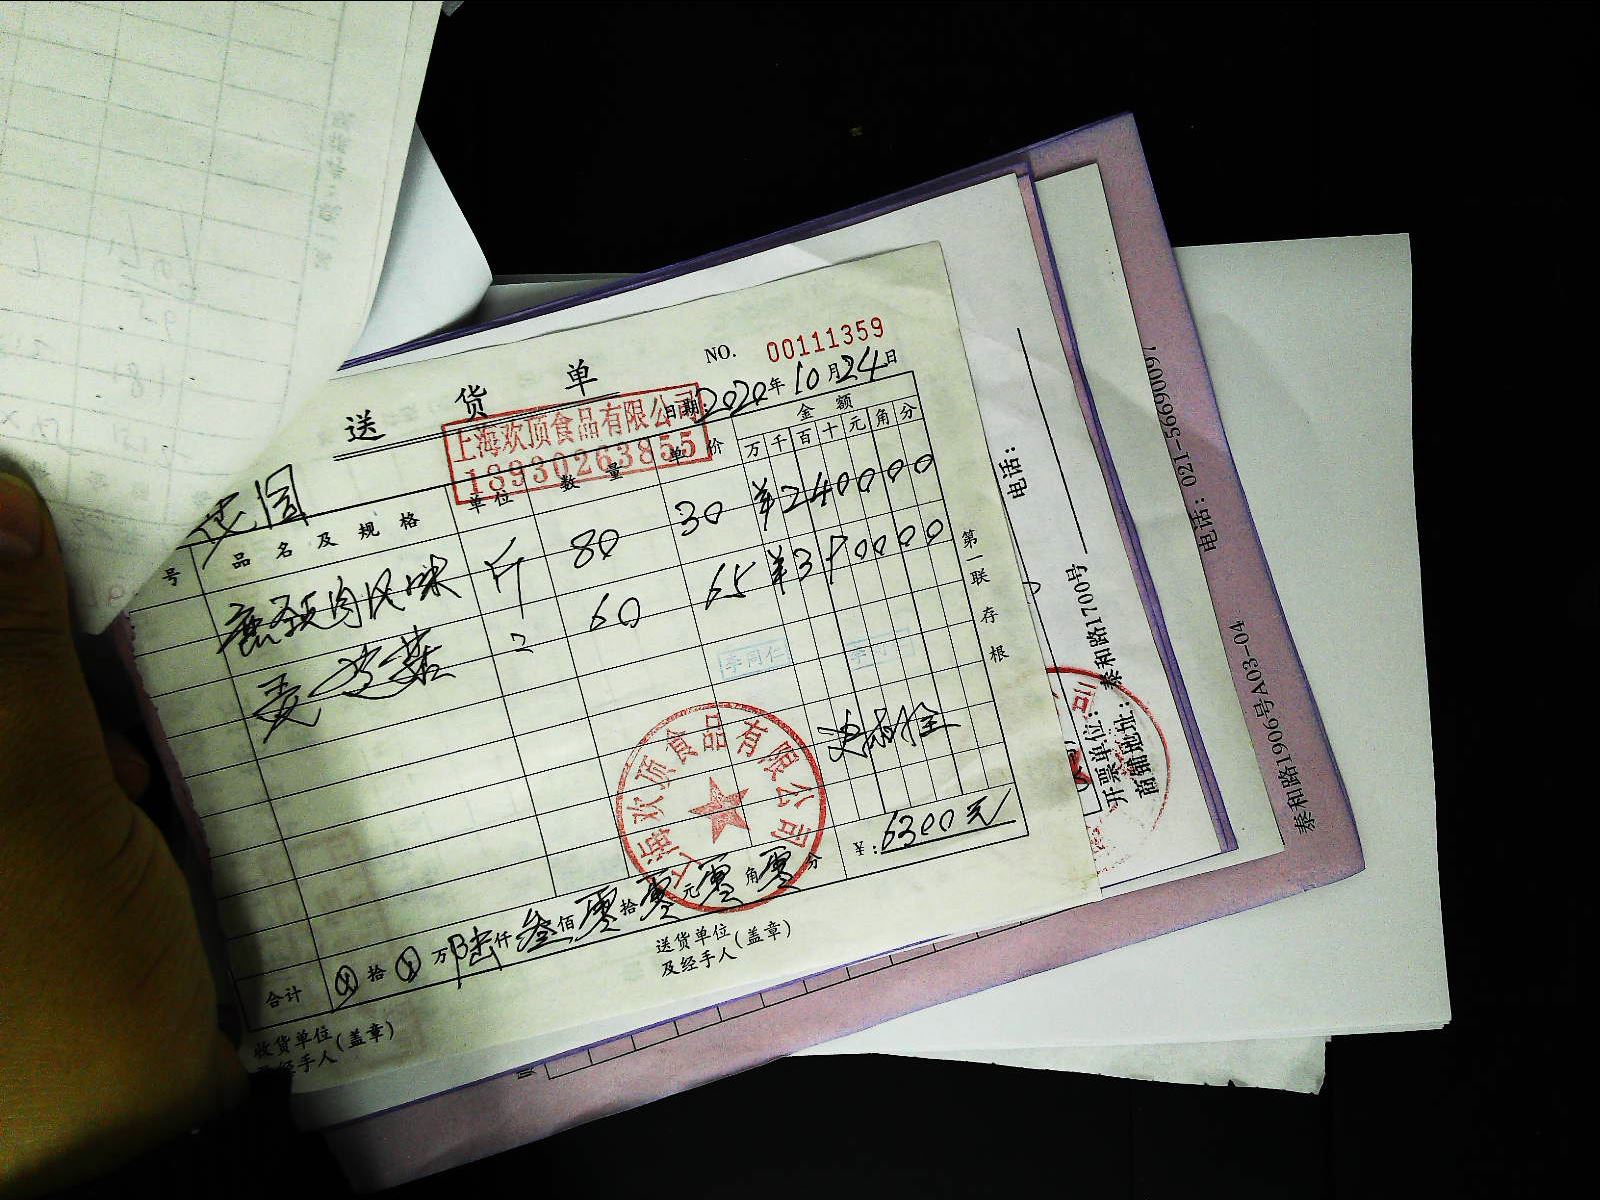 送货单
NO. 00111359
日期: 2020年10月24日
上海欢顶食品有限公司
18930263855
花园
号 品名及规格 单位 数量 单价 金额
万 千 百 十 元 角 分
鹿颈肉风味 斤 80 30 ¥240000
菇 〃 60 65 ¥390000
李同仁
第一联 存根
上海欢顶食品有限公司
合计 ⊗ 拾 ⊗ 万 陆 仟 叁 佰 零 拾 零 元 零 角 零 分 ¥: 6300元
收货单位及经手人(盖章)
送货单位及经手人(盖章)
电话:
开票单位:
商铺地址: 泰和路1700号
电话: 021-56690097
泰和路1906号A03-04